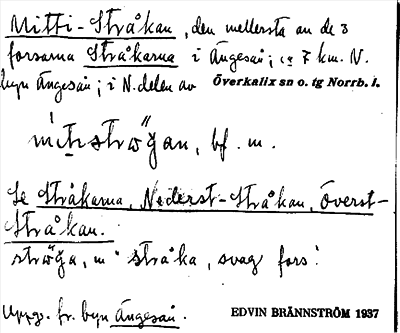 Mitti-Stråkan, den mellersta av de 3
forsarna Stråkarna i Ängesån; ca 7 km. N.
byn Ängesån; i N. delen av Överkalix sn o. tg Norrb. l.
bf. m.
Se Stråkarna, Nederst-Stråkan, Överst-
Stråkan.
m. stråka, svag fors!
Uppg. fr. byn Ängesån.
EDVIN BRÄNNSTRÖM 1937